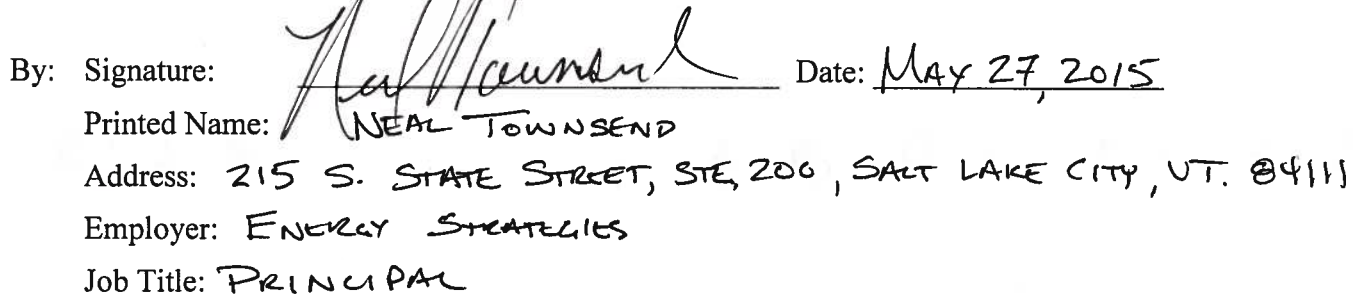 By: Signature: Neal Townsend Date: MAY 27, 2015
Printed Name: NEAL TOWNSEND
Address: 215 S. STATE STREET, STE, 200, SALT LAKE CITY, UT. 84111
Employer: ENERGY STRATEGIES
Job Title: PRINCIPAL